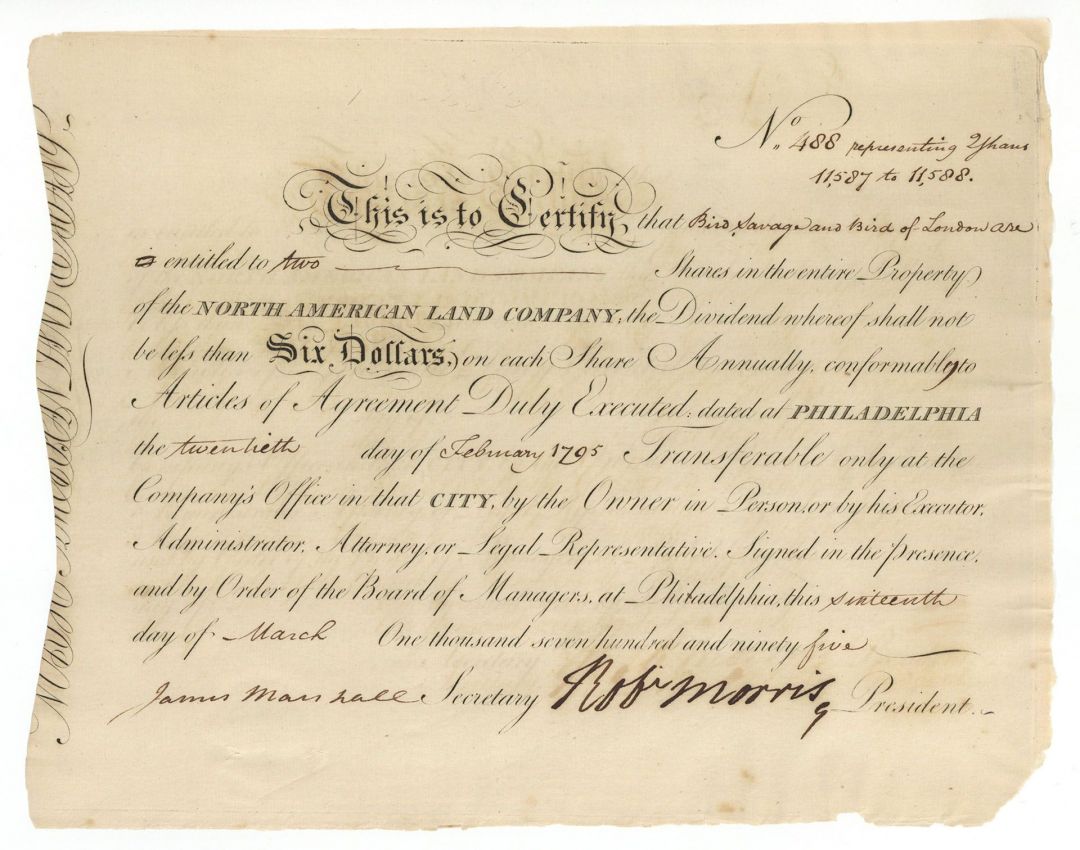 No. 488 representing 2 Shares
11,587 to 11,588.
This is to Certify, that Bird, Savage and Bird of London are
entitled to two Shares in the entire Property
of the NORTH AMERICAN LAND COMPANY; the Dividend whereof shall not
be leſs than Six Dollars, on each Share Annually, conformably to
Articles of Agreement Duly Executed; dated at PHILADELPHIA
the twentieth day of February 1795 Transferable only at the
Company's Office in that CITY, by the Owner in Person, or by his Executor,
Administrator, Attorney, or Legal Representative. Signed in the Presence,
and by Order of the Board of Managers, at Philadelphia, this sixteenth
day of March One thousand seven hundred and ninety five
James Marshall Secretary Robt Morris President.